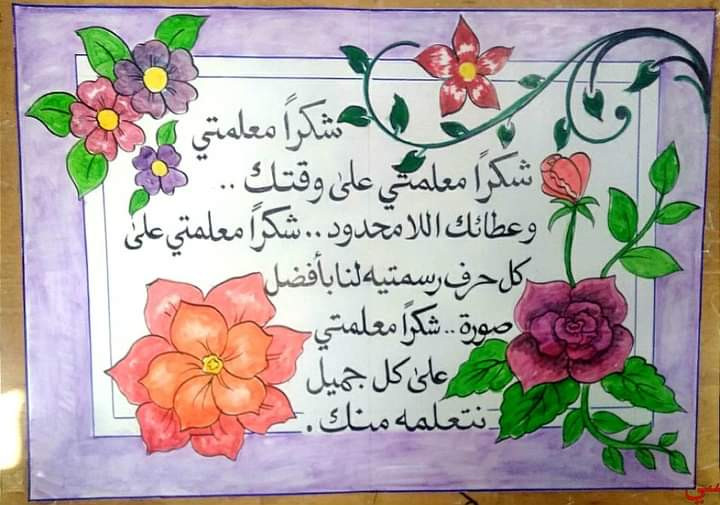 شكراً معلمتي
شكراً معلمتي على وقتك ..
وعطائك اللامحدود .. شكراً معلمتي على
كل حرف رسمتيه لنا بأفضل
صورة .. شكراً معلمتي
على كل جميل
نتعلمه منك .